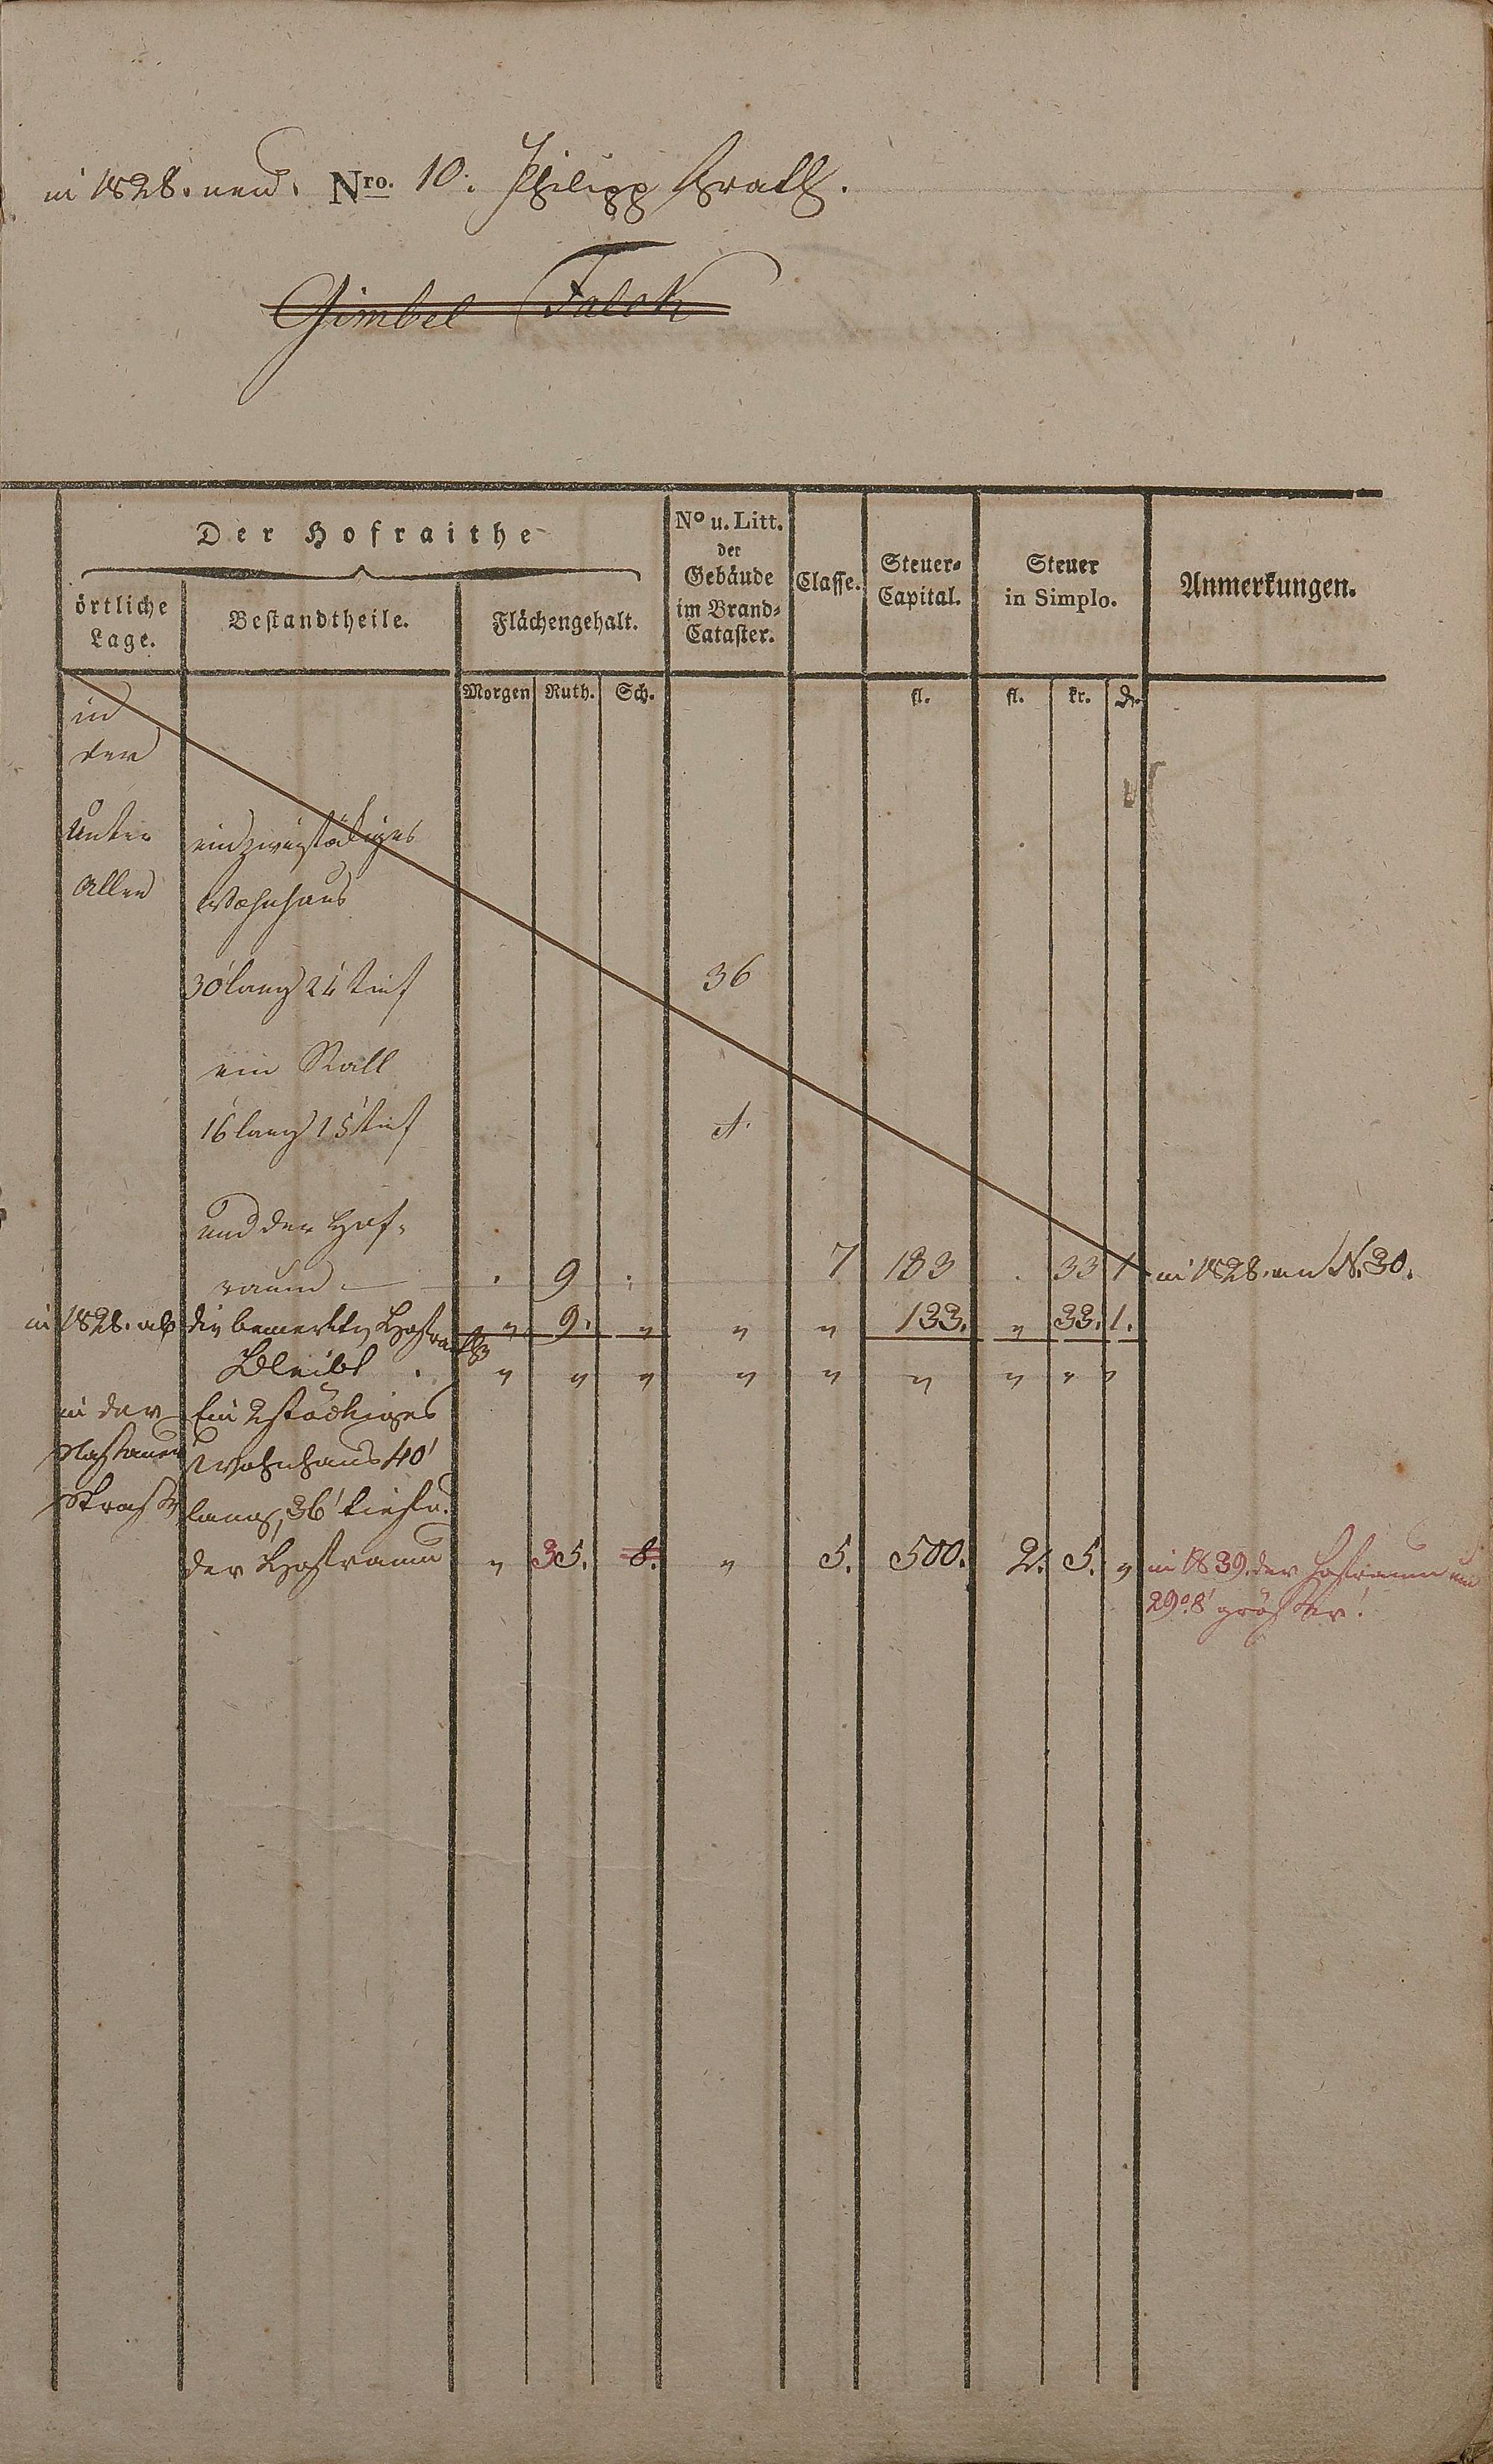 in 1828. neu. Nro. 10: Philipp
Gimbel Falck
Der Hofraithe
örtliche Lage.
Bestandtheile.
Flächengehalt.
No u. Litt. der Gebäude im Brand-Cataster.
Classe.
Steuer-Capital.
Steuer in Simplo.
Anmerkungen.
Morgen Ruth. Sch. fl. fl. kr. d.
in
der
Unter ein zweistökiges
Allee Wohnhaus
30' lang 24' tief 36
ein Stall
16' lang 15' tief A.
und der Hof-
raum . 9 . 7 133 . 33 1 in 1828. an N. 30.
in 1828. ab die bemerkte Hofraith " 9. " " " 133. " 33. 1.
Bleibt . " " " " " " " " "
in der Ein 2stöckiges
Nassauer Wohnhaus 40'
Strasse lang, 36' tief u.
der Hofraum " 35. 8. " 5. 500. 2. 5. " in 1839. der Hofraum um
29°.8' größer!